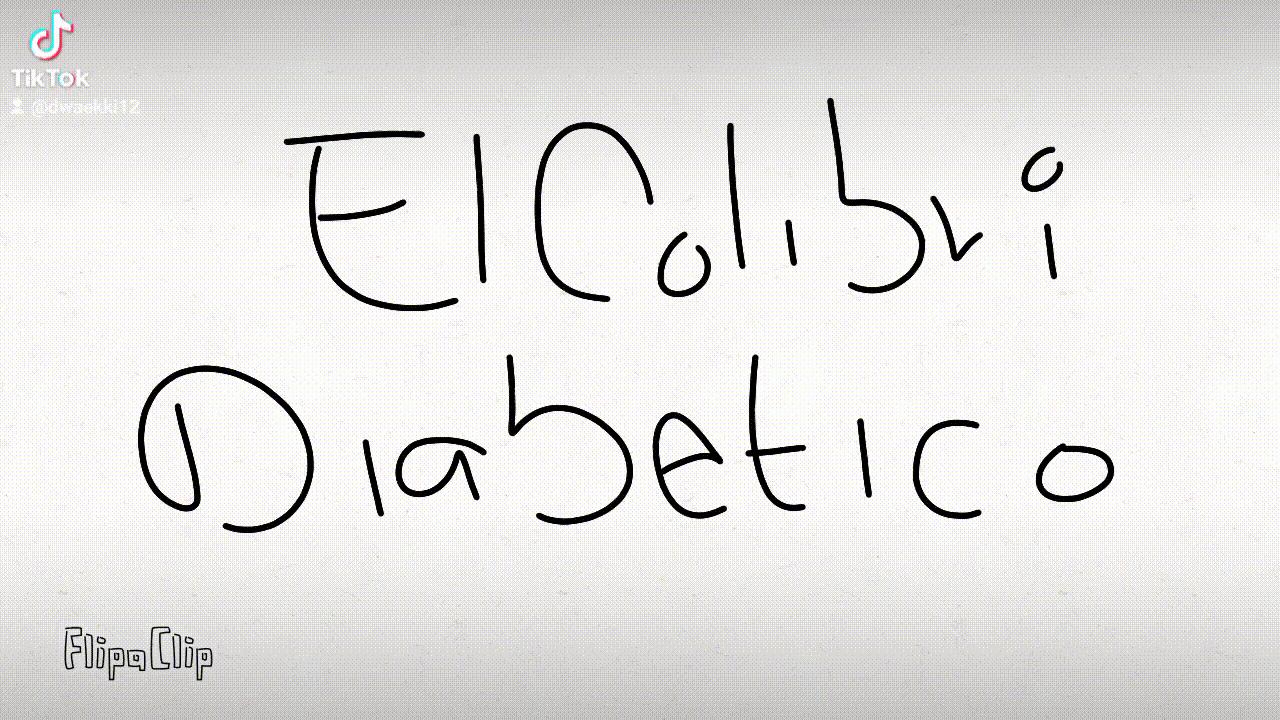 TikTok
@dwackki12
El Colibri
Diabetico
FlipaClip